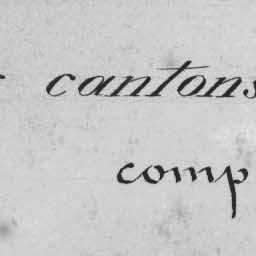 cantons
comp